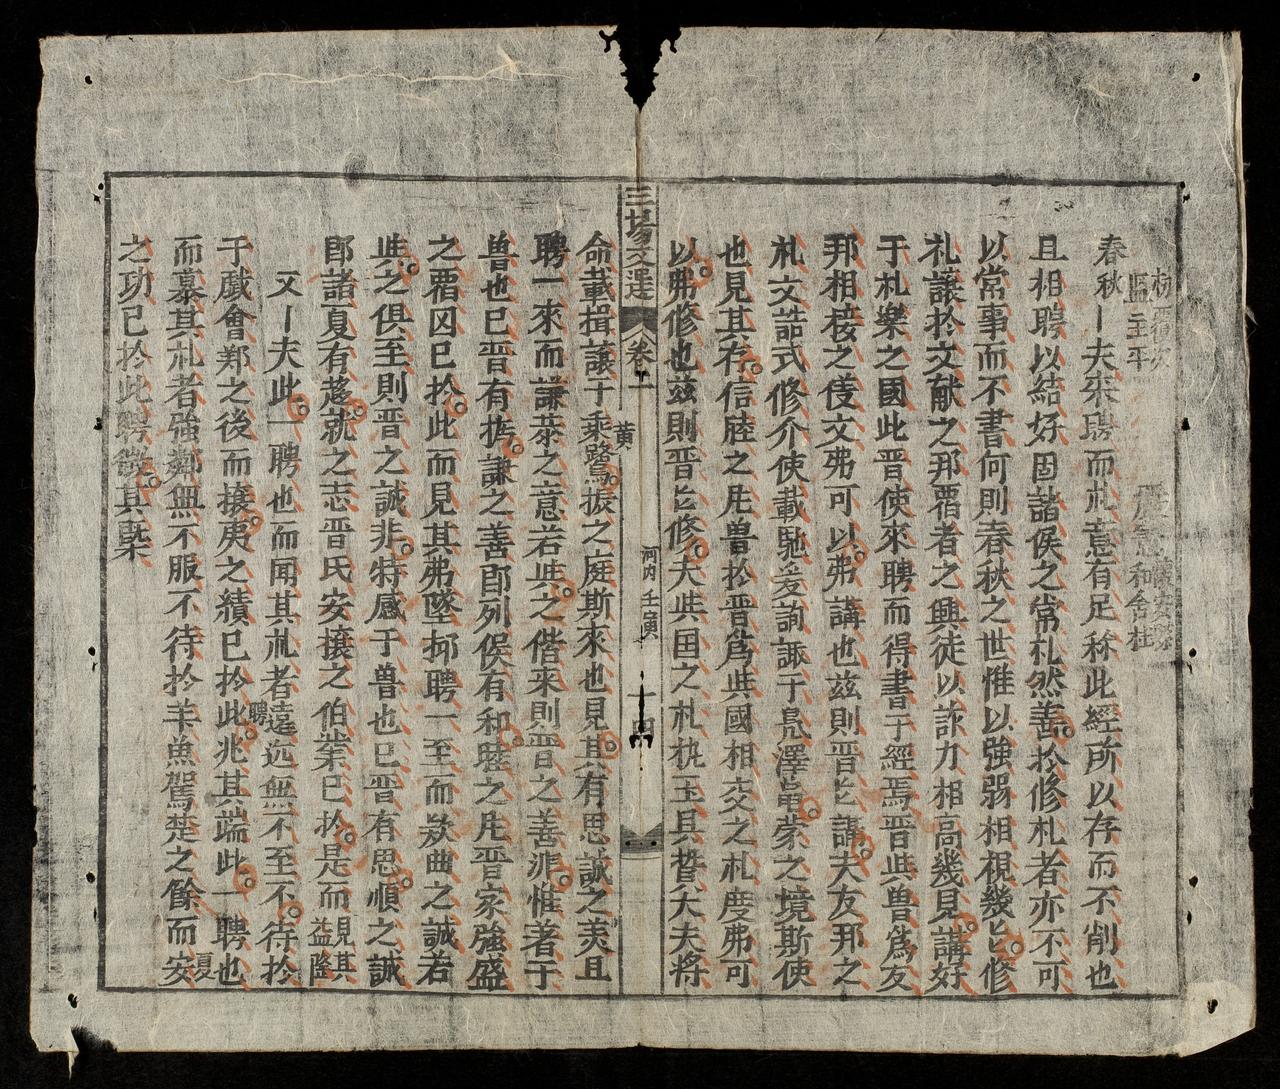 春秋
夫来聘而礼意有足称此經所以存而不削也
且相聘以結好固諸侯之常礼然善於修礼者亦不可
以常事而不書何則春秋之世惟以強弱相視幾乏修
礼讓於文献之邦覀者之興徒以詐力相高幾見講好
于礼樂之國此晋使來聘而得書于經焉晋與魯為友
邦相接之使文弗可以弗講也茲則晋乞講夫友邦之
礼文誥式修介使載馳爰詢諏于鳧澤龜蒙之境斯使
也見其存信睦之尼魯於晋為與國相交之礼度弗可
以弗修也茲則晋乞修夫與国之礼执玉具贄夫夫將
命載揖讓于乘鷺振之庭斯來也見其有思誠之羙且
聘一來而謙㳟之意若與之偕来則晋之善非惟著于
魯也已晋有㧑謙之善即列侯有和睦之尼晋家強盛
之覀囚已於此而見其弗墜抑聘一至而欵曲之誠若
與之俱至則晋之誠非特感于魯也已晋有思順之誠
即諸夏有趍就之志晋氏安攘之伯業已於是而見其益隆
又 夫此一聘也而聞其礼者遠近無不至不待於
于戲會鄭之後而攘庚之績已於此聘兆其端此一聘也
而慕其礼者強鄰無不服不待於羊魚駕楚之餘而安夏
之功已於此聘徵其槩
三場文選 卷一
黃
河內 壬寅
十四